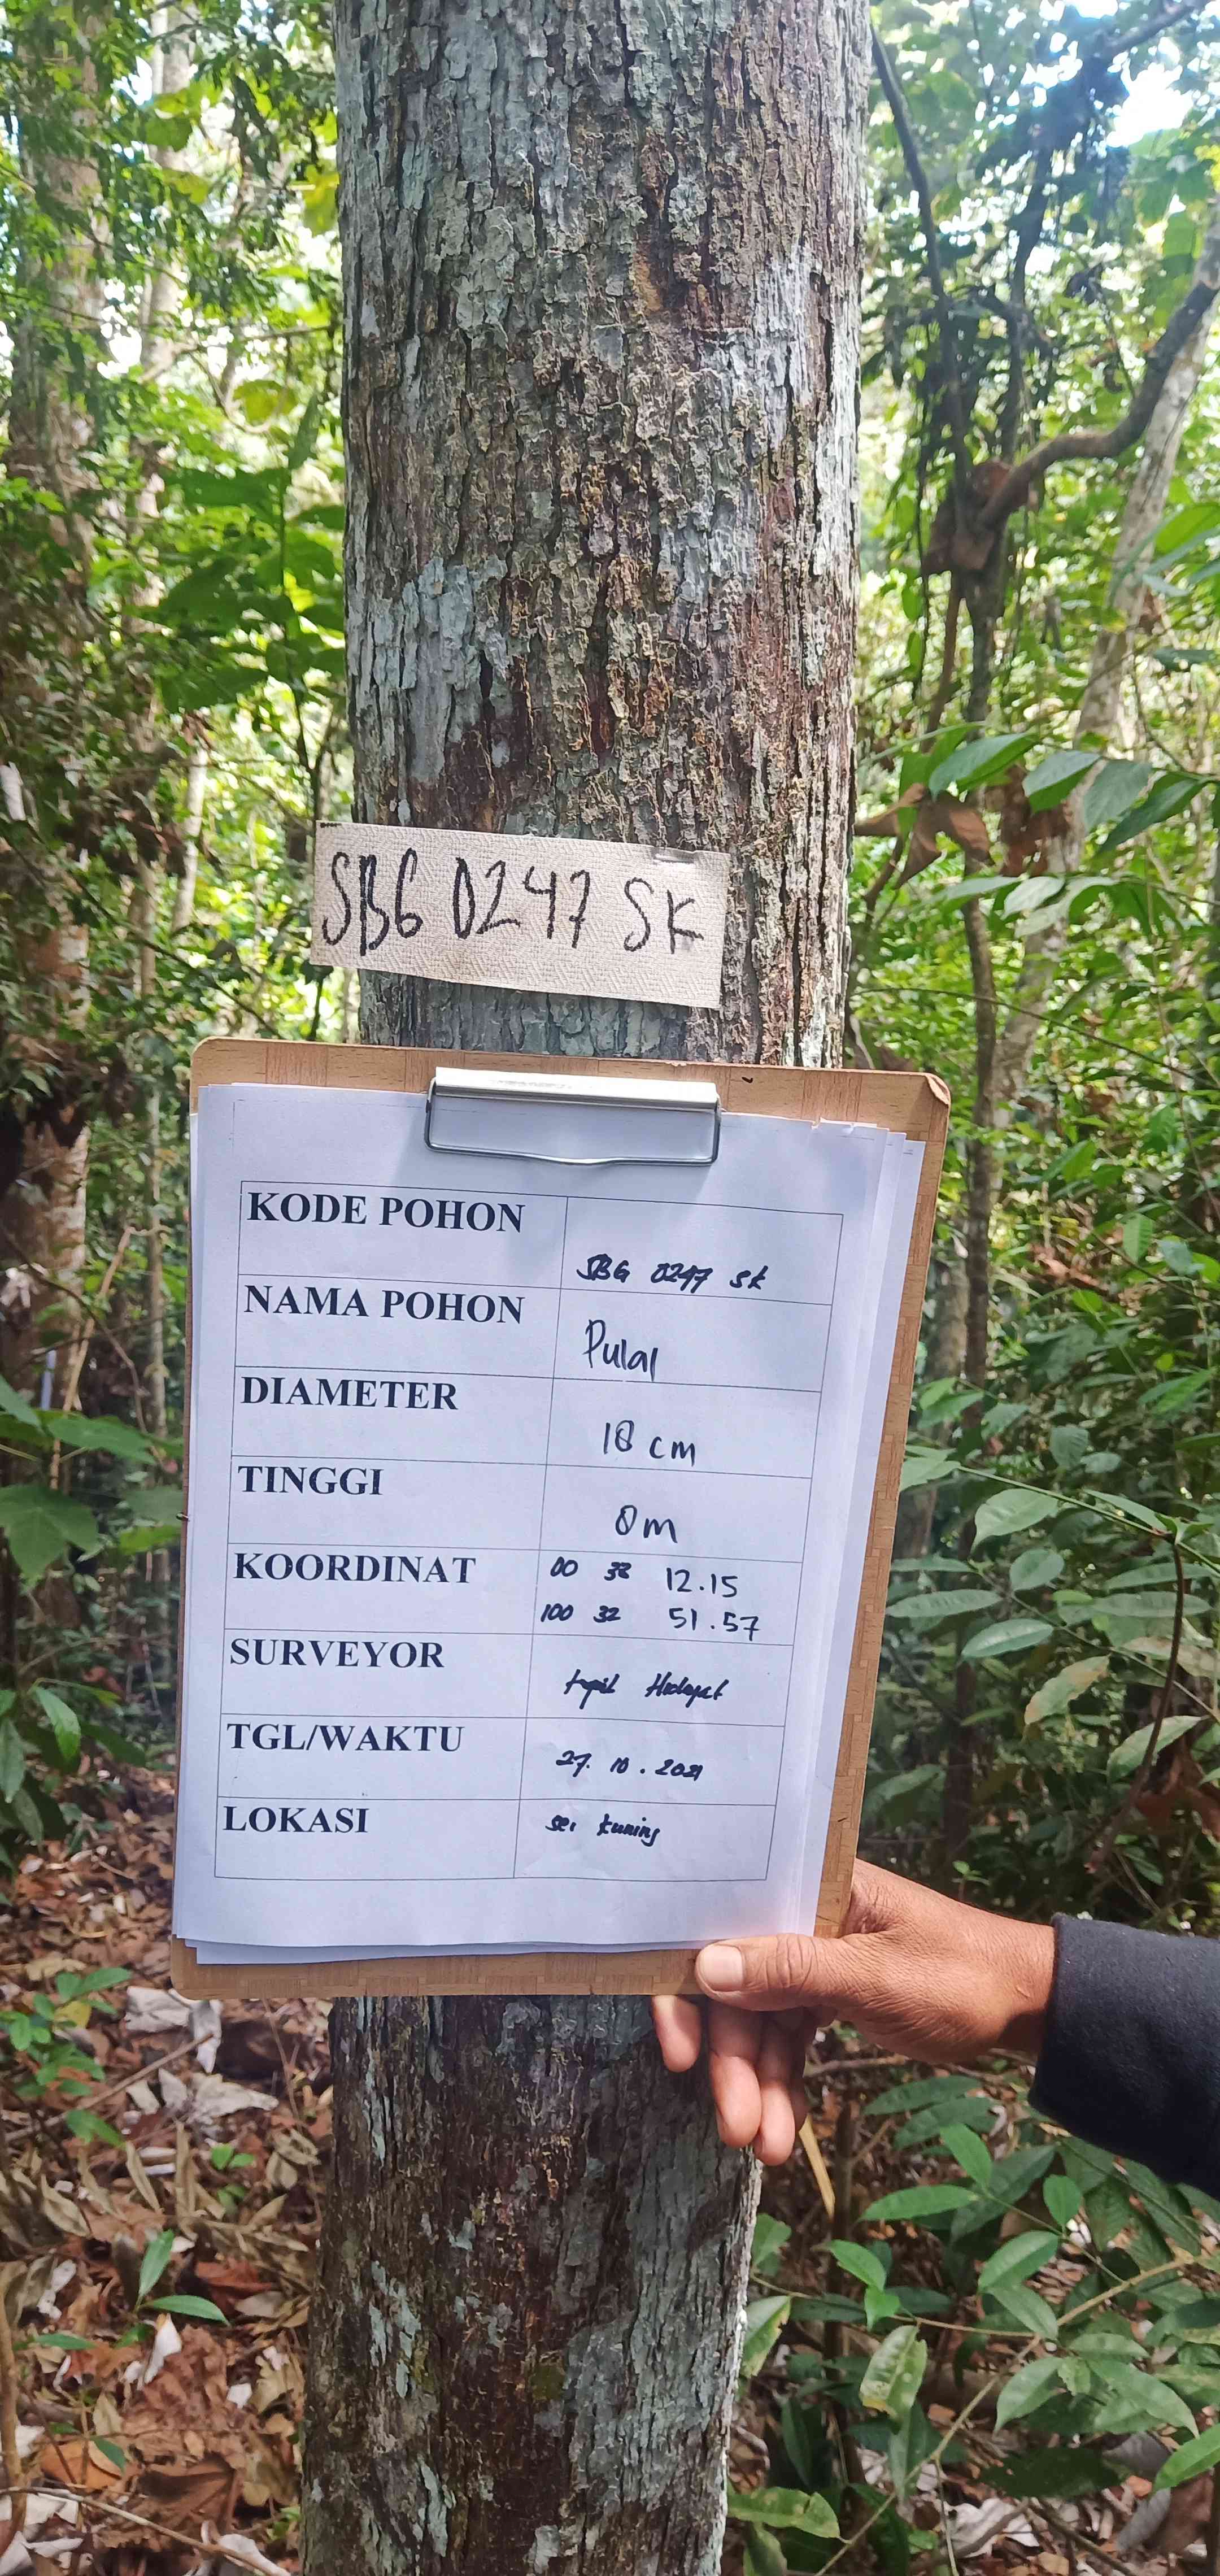 SBG 0247 SK
KODE POHON
SBG 0247 SK
NAMA POHON
Pulai
DIAMETER
18 cm
TINGGI
8 m
KOORDINAT
00 32 12.15
100 32 51.57
SURVEYOR
Hidayat
TGL/WAKTU
27. 10. 2021
LOKASI
sei kuning